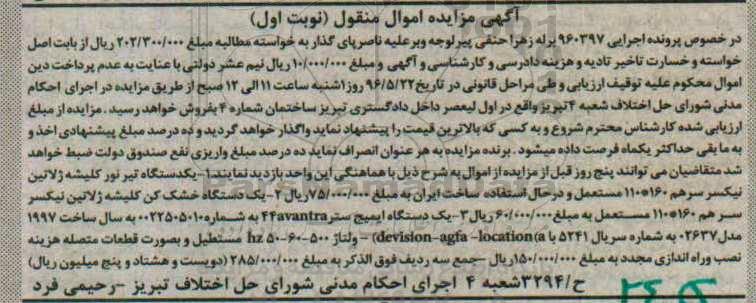 آگهی مزایده اموال منقول (نوبت اول)
در خصوص پرونده اجرایی ۹۶۰۳۹۷ برله زهرا حنفی پیرلوجه وبر علیه ناصر پای گذار به خواسته مطالبه مبلغ ۲۰۲/۳۰۰/۰۰۰ ریال از بابت اصل
خواسته و خسارت تاخیر تادیه و هزینه دادرسی و کارشناسی و آگهی و مبلغ ۱۰/۰۰۰/۰۰۰ ریال نیم عشر دولتی با عنایت به عدم پرداخت دین
اموال محکوم علیه توقیف ارزیابی و طی مراحل قانونی در تاریخ ۹۶/۵/۲۲ روز ۱شنبه ساعت ۱۱ الی ۱۲ صبح از طریق مزایده در اجرای احکام
مدنی شورای حل اختلاف شعبه ۴ تبریز واقع در اول لیعصر داخل دادگستری تبریز ساختمان شماره ۴ بفروش خواهد رسید. مزایده از مبلغ
ارزیابی شده کارشناس محترم شروع و به کسی که بالاترین قیمت را پیشنهاد نماید واگذار خواهد گردید و ده درصد مبلغ پیشنهادی اخذ و
به ما بقی حداکثر یکماه فرصت داده میشود. برنده مزایده به هر عنوان انصراف نماید ده درصد مبلغ واریزی نفع صندوق دولت ضبط خواهد
شد متقاضیان می توانند پنج روز قبل از مزایده از اموال به شرح ذیل با هماهنگی این واحد بازدید نمایند.۱-یکدستگاه تیر نور کلیشه ژلاتین
نیکسر سرهم ۱۶۰*۱۱۰ مستعمل و درحال استفاده ساخت ایران به مبلغ ۷۵/۰۰۰/۰۰۰ریال ۲-یک دستگاه خشک کن کلیشه ژلاتین نیکسر
سر هم ۱۶۰*۱۱۰ مستعمل به مبلغ ۶۰/۰۰۰/۰۰۰ ریال ۳-یک دستگاه ایمیج ستر ۴۴avantra به شماره ۰۰۲۲۵۰۵۰۱۰ به سال ساخت ۱۹۹۷
مدل ۰۲۶۳۷ به شماره سریال ۵۲۴۱ با devision-agfa -location(a)- ولتاژ ۵۰۰-۶۰-۵۰ hz مستطیل و بصورت قطعات متصله هزینه
نصب وراه اندازی مجدد به مبلغ ۱۵۰/۰۰۰/۰۰۰ریال -جمع سه ردیف فوق الذکر به مبلغ ۲۸۵/۰۰۰/۰۰۰ (دویست و هشتاد و پنج میلیون ریال)
ح/۳۲۹۴شعبه ۴ اجرای احکام مدنی شورای حل اختلاف تبریز -رحیمی فرد